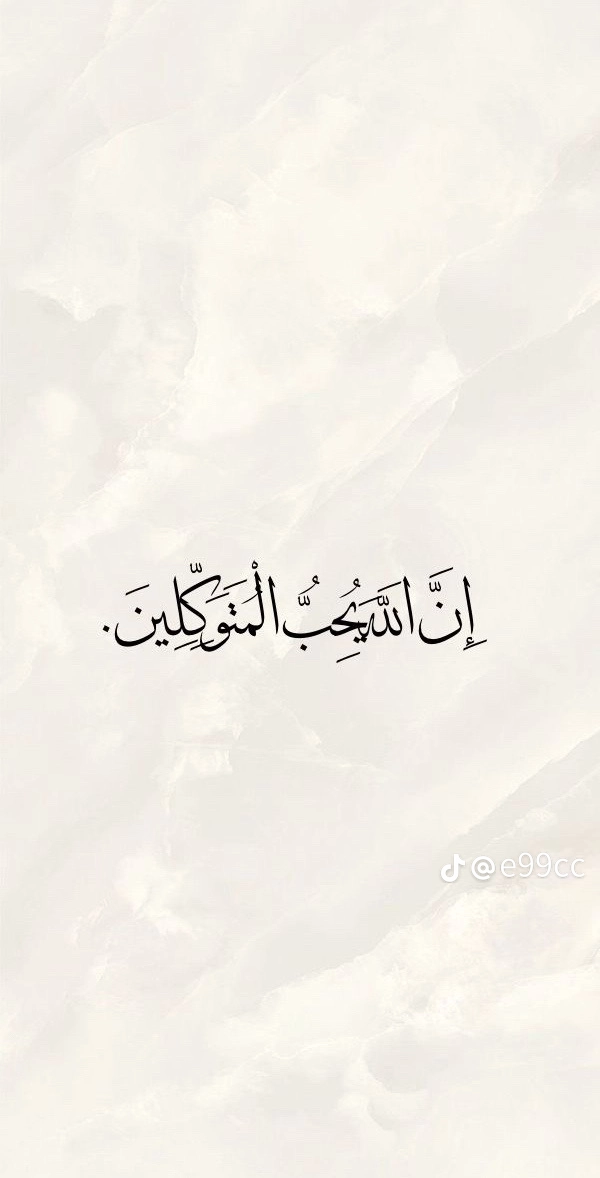 إِنَّ اللَّهَ يُحِبُّ الْمُتَوَكِّلِينَ.
@e99cc